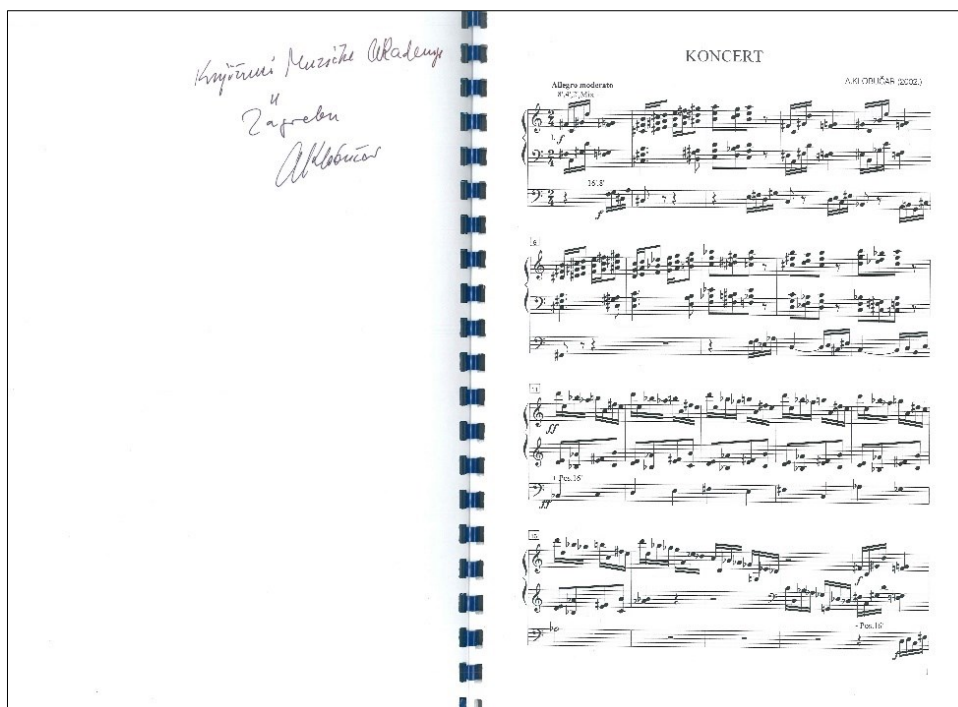 Knjižnici Muzičke Akademije
u
Zagrebu
AKlobučar
KONCERT
A.KLOBUČAR (2002.)
Allegro moderato
8',4',2',Mix
I.
f
16',8'
f
6
11
ff
+ Pos.16'
ff
f
- Pos.16'
f
1